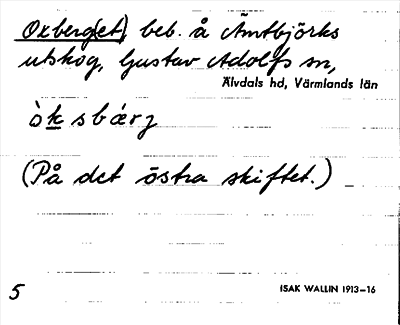 Oxberg(et) beb. å Ämtbjörks
utskog, Gustav Adolfs sn,
Älvdals hd, Värmlands län
òksbærj
(På det östra skiftet.)
5 ISAK WALLIN 1913–16